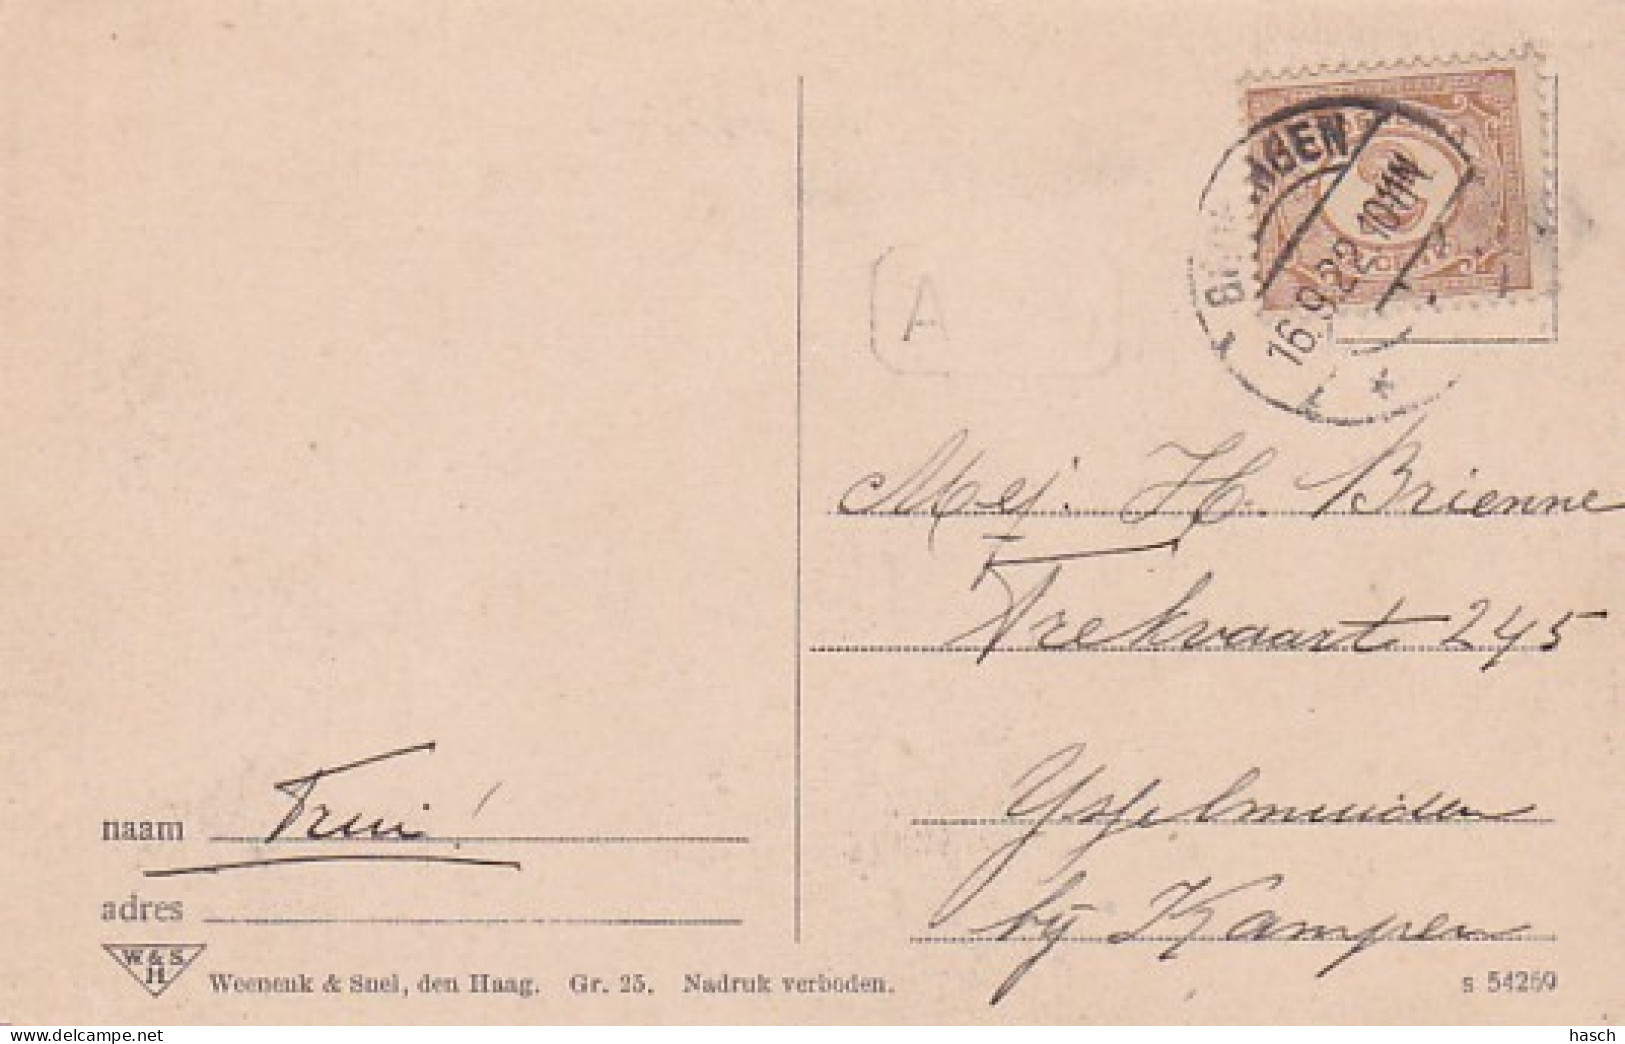 16.9.22.10-11N
A
Mej. H. Brienne
Trekvaart 245
Ysselmuiden
bij Kampen
naam Trui!
adres
W & S
H
Weenenk & Snel, den Haag. Gr. 25. Nadruk verboden.
s 54269
hasch